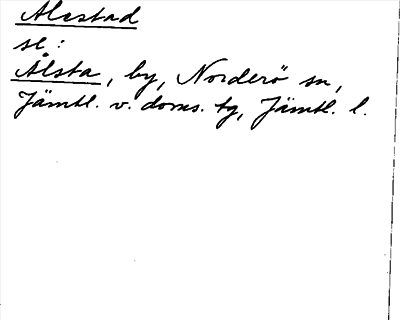 Alestad
se:
Ålsta, by, Norderö sn,
Jämtl. v. doms. tg, Jämtl. l.